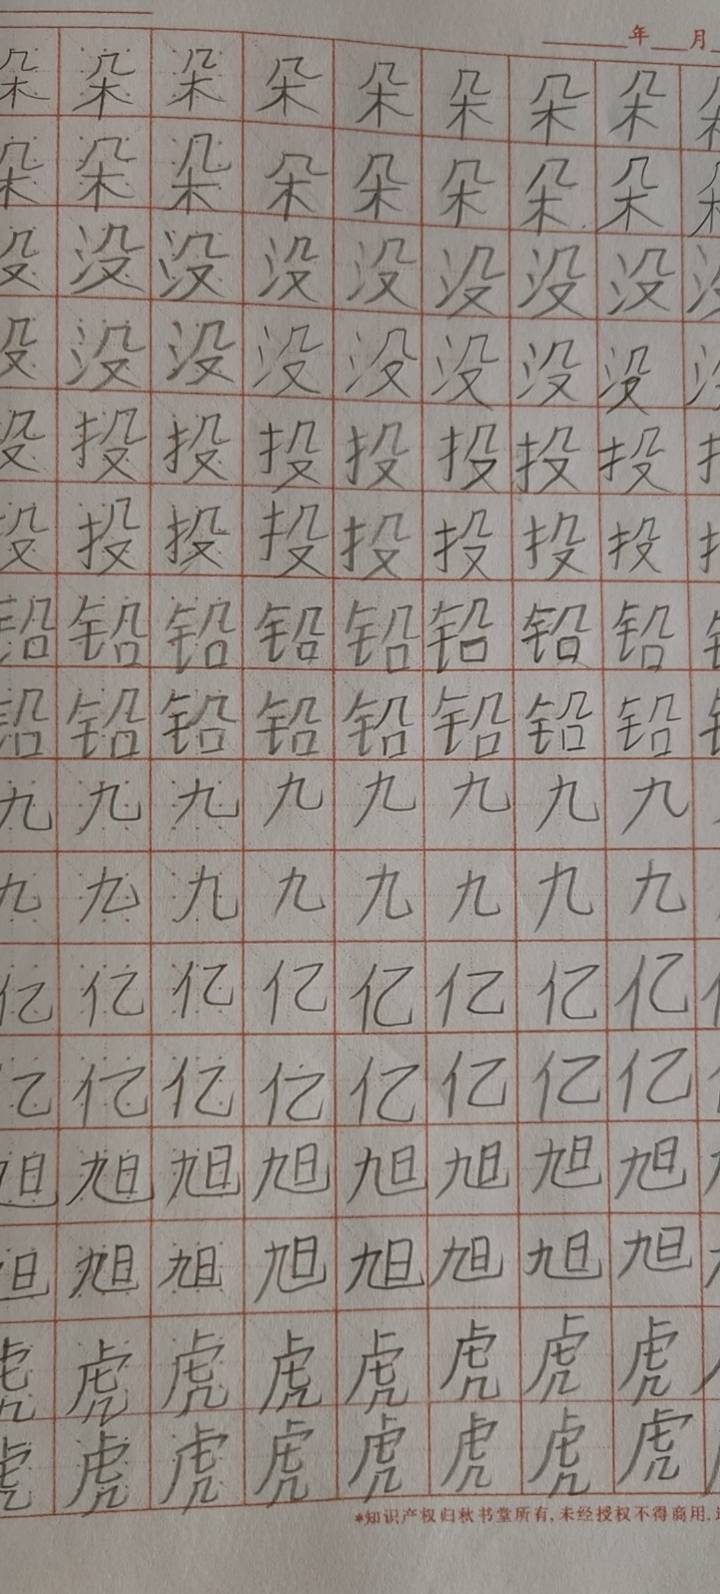 年 月
朵 朵 朵 朵 朵 朵 朵 朵 朵
朵 朵 朵 朵 朵 朵 朵 朵 朵
没 没 没 没 没 没 没 没
没 没 没 没 没 没 没 没
投 投 投 投 投 投 投 投
投 投 投 投 投 投 投 投
铅 铅 铅 铅 铅 铅 铅 铅
铅 铅 铅 铅 铅 铅 铅 铅
九 九 九 九 九 九 九 九
九 九 九 九 九 九 九 九
亿 亿 亿 亿 亿 亿 亿 亿
亿 亿 亿 亿 亿 亿 亿 亿
旭 旭 旭 旭 旭 旭 旭 旭
旭 旭 旭 旭 旭 旭 旭 旭
虎 虎 虎 虎 虎 虎 虎 虎
虎 虎 虎 虎 虎 虎 虎 虎
*知识产权归秋书堂所有,未经授权不得商用,